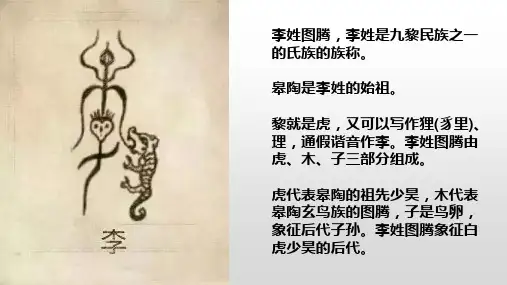 李
李姓图腾，李姓是九黎民族之一
的氏族的族称。
皋陶是李姓的始祖。
黎就是虎，又可以写作狸(豸里)、
理，通假谐音作李。李姓图腾由
虎、木、子三部分组成。
虎代表皋陶的祖先少昊，木代表
皋陶玄鸟族的图腾，子是鸟卵，
象征后代子孙。李姓图腾象征白
虎少昊的后代。